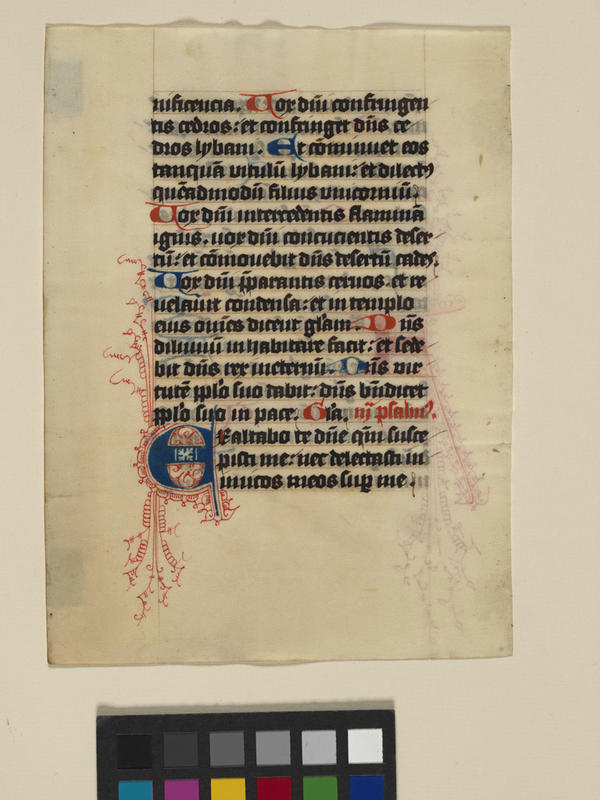 nificencia. Uox dn̄i confringen
tis cedros: et confringet dn̄s ce
dros lybani. Et cōminuet eos
tanquā vitulū lybani: et dilectꝰ
quēadmodū filius vnicorniū.
Uox dn̄i intercedentis flammā
ignis. uox dn̄i concucientis deser
tū: et cōmouebit dn̄s desertū cades.
Uox dn̄i p̄parantis ceruos. et re
uelauit condensa: et in templo
eius om̄es dicent glām. Dn̄s
diluuiū inhabitare facit: et sede
bit dn̄s rex ineternū. Dn̄s vir
tutē pplo suo dabit: dn̄s bn̄dicet
pplo suo in pace. Glā. iij psalmꝰ.
Exaltabo te dn̄e qm̄ susce
pisti me: nec delectasti in
imicos meos suꝑ me.